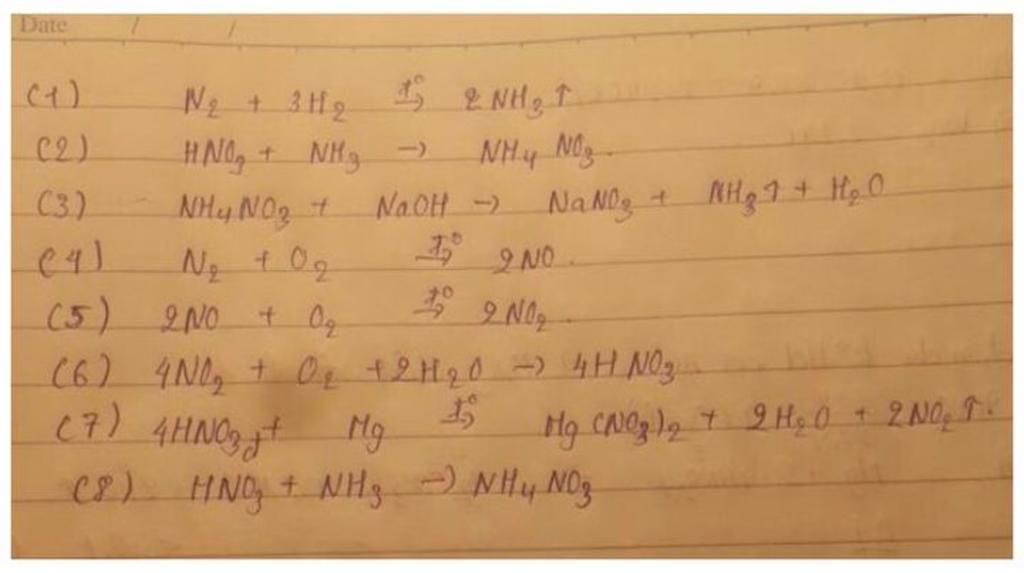 Date / /
(1) N₂ + 3H₂ t°→ 2NH₃↑
(2) HNO₃ + NH₃ → NH₄NO₃.
(3) NH₄NO₃ + NaOH → NaNO₃ + NH₃↑ + H₂O
(4) N₂ + O₂ t°→ 2NO.
(5) 2NO + O₂ t°→ 2NO₂.
(6) 4NO₂ + O₂ + 2H₂O → 4HNO₃
(7) 4HNO₃đ + Mg t°→ Mg(NO₃)₂ + 2H₂O + 2NO₂↑.
(8) HNO₃ + NH₃ → NH₄NO₃